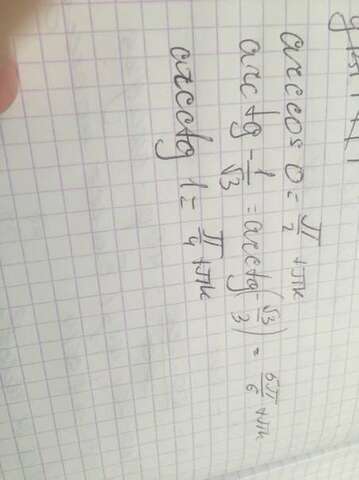 arccos 0 = π/2 + πk
arctg -1/√3 = arcctg(-√3/3) = 5π/6 + πk
arcctg 1 = π/4 + πk